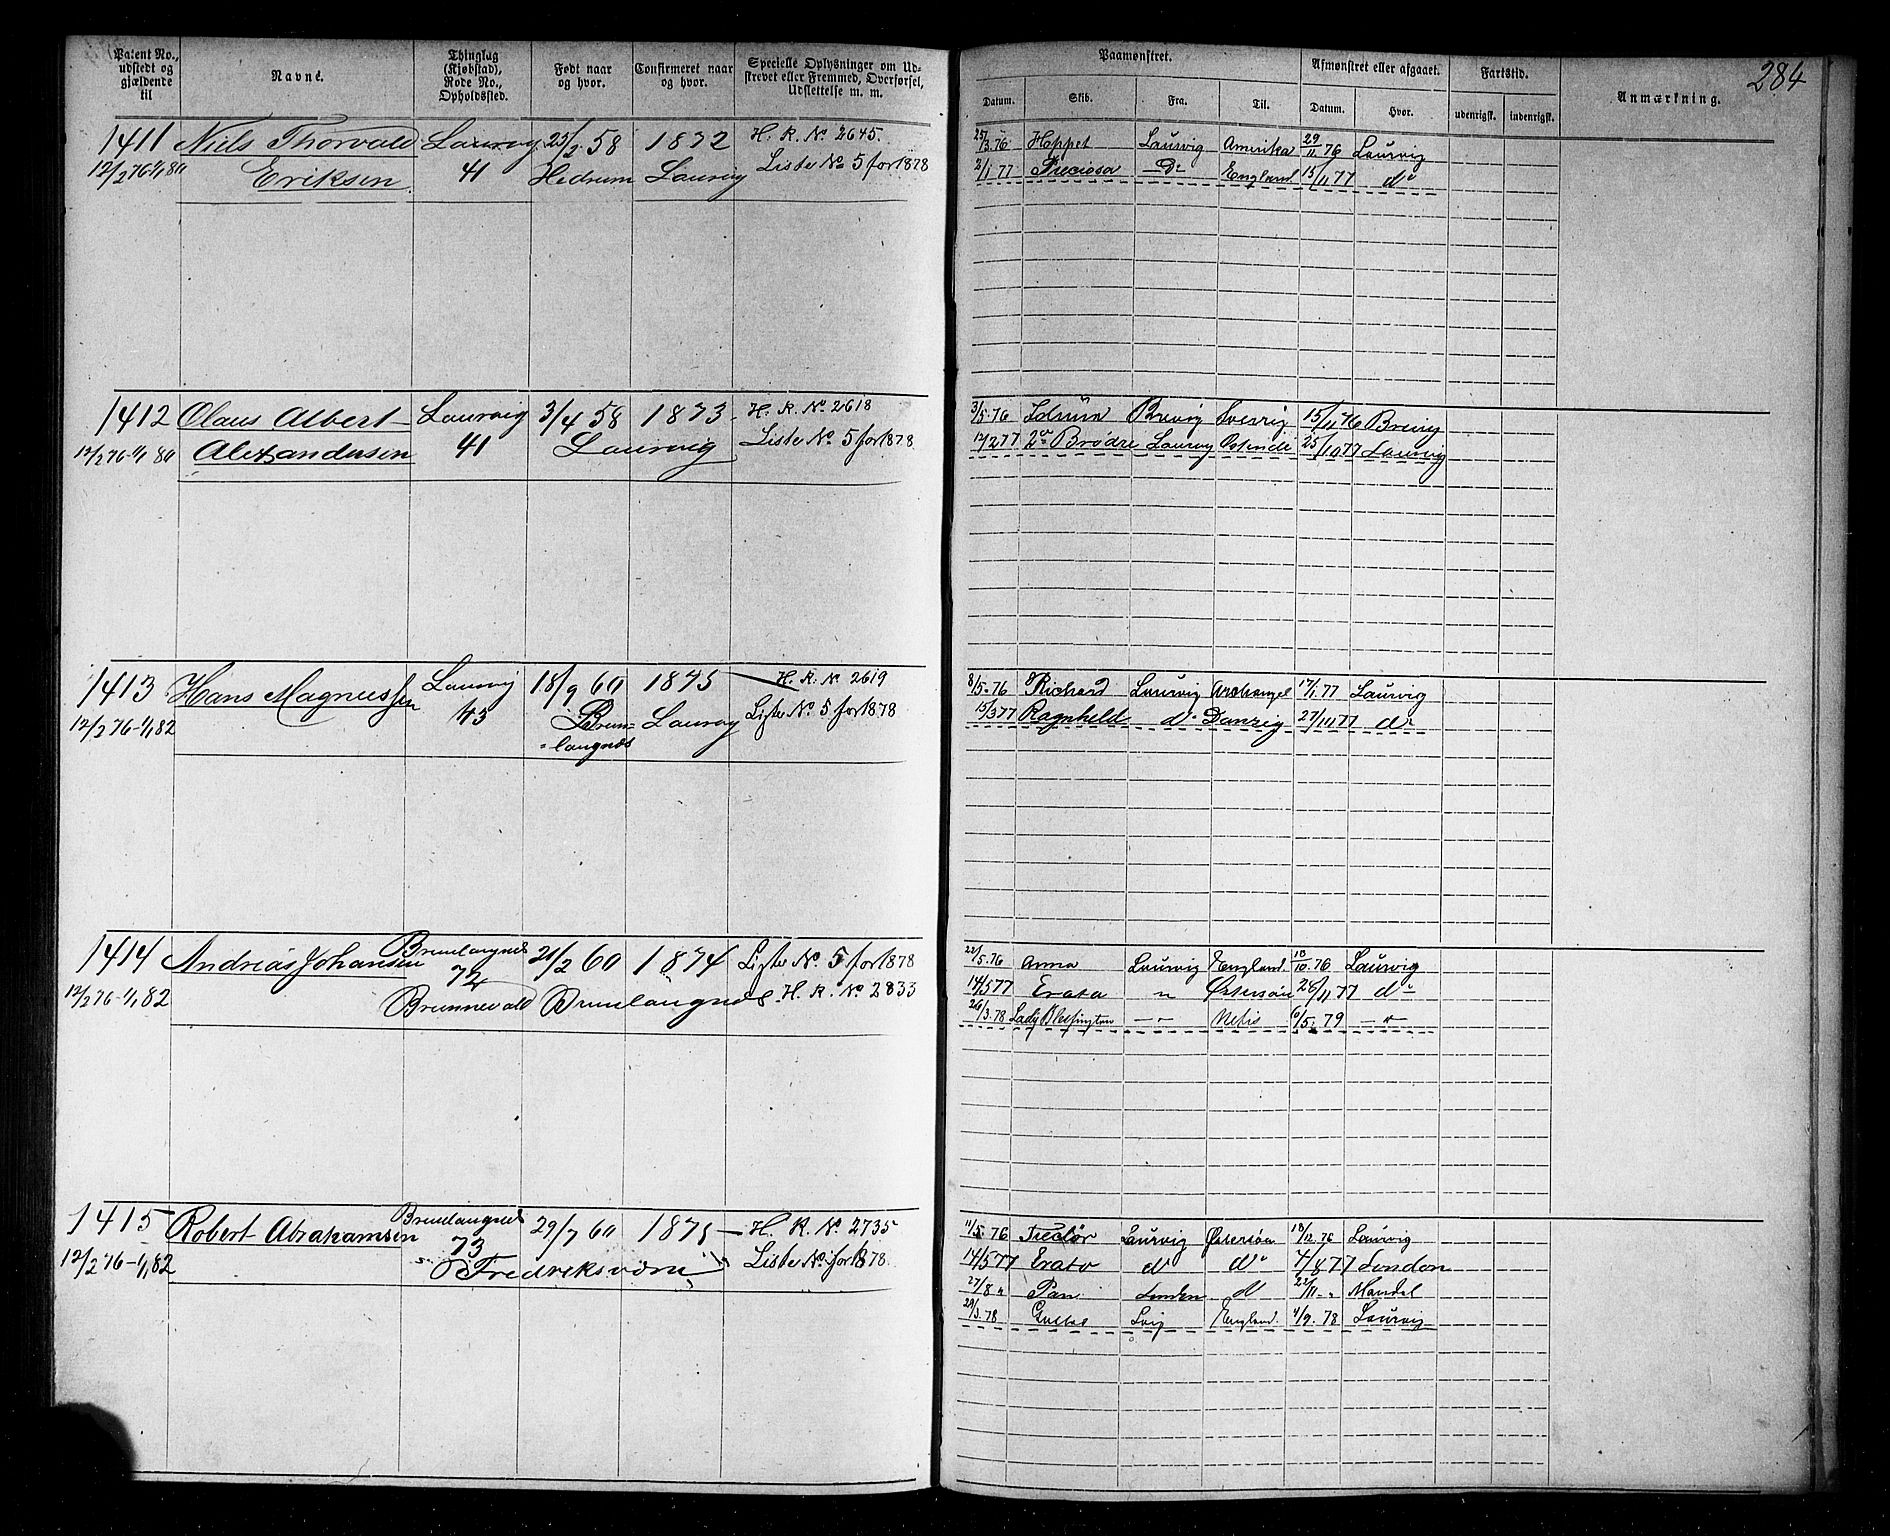 284
Patent No., udstedt og gjældende til
Navne.
Thinglag (Kjøbstad), Rode No., Opholdssted.
Født naar og hvor.
Confirmeret naar og hvor.
Specielle Oplysninger om Udskrevet eller Fremmed, Overførsel, Udslettelse m. m.
Paamønstret.
Datum. Skib. Fra. Til.
Afmønstret eller afgaaet.
Datum. Hvor.
Fartstid.
udenrigsk. indenrigsk.
Anmærkning.
1411 Niels Thorvald Laurvig 25/2 58 1872 H. R. No 2645.
12/2 76-1/1 80 Eriksen. 41 Hedrum Laurvig Liste No 5 for 1878
25/3.76 Happet Laurvig Amerika 29/11 76 Laurvig
2/1 77 Preciosa -Do- England 15/11 77 do
1412 Olaus Albert Laurvig 3/4 58 1873 H. R. No. 2618
12/2 76-1/1 80 Alexandersen 41 Laurvig Liste No. 5 for 1878
3/5.76 Brevig Sverig 15/11 76 Brevig
17/2 77 2de Brødre Laurvig Ostende 25/10 77 Laurvig
1413 Hans Magnussen Laurvig 18/9 60 1875 H. R. No 2619
12/2 76-1/1 82 45 Brun= Laurvig Liste No. 5 for 1878
=langnæs
8/5.76 Richard Laurvig Archangel 17/1.77 Laurvig
15/3 77 Ragnhild do Danzig 27/11 77 do
1414 Andreas Johansen Brunlangnæs 21/2 60 1874 Liste No. 5 for 1878
72
12/2 76-1/1 82 Brunnevald Brunlangnæs H. R. No. 2833
22/5.76 Anna Laurvig England 10/10.76 Laurvig
14/5 77 Erato " Østersøn 28/11 77 do
26/3.78 Lady Blessington -"- Metis 6/5.79 -"-
1415 Robert Abrahamsen Brunlangnæs 29/7 60 1875 H. R. No. 2735
73
12/2 76-1/1 82 Fredriksværn Liste No. for 1878.
11/5.76 Laurvig Østersøn 18/12.76 Laurvig
14/5 77 Erato do do 4/8 77 London
27/8 " Pan London do 22/11 " Mandal
29/3.78 Lvig England. 4/9.78 Laurvig